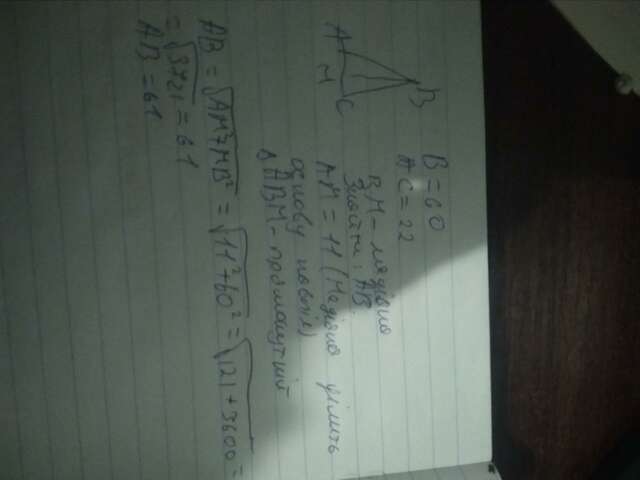 A
M
C
B
B = 60
AC = 22
BM - медіана
Знайти: AB.
AM = 11 (Медіана ділить
основу навпіл)
Δ ABM - прямокутній
AB = √AM²+MB² = √11²+60² = √121+3600 =
= √3721 = 61
AB = 61